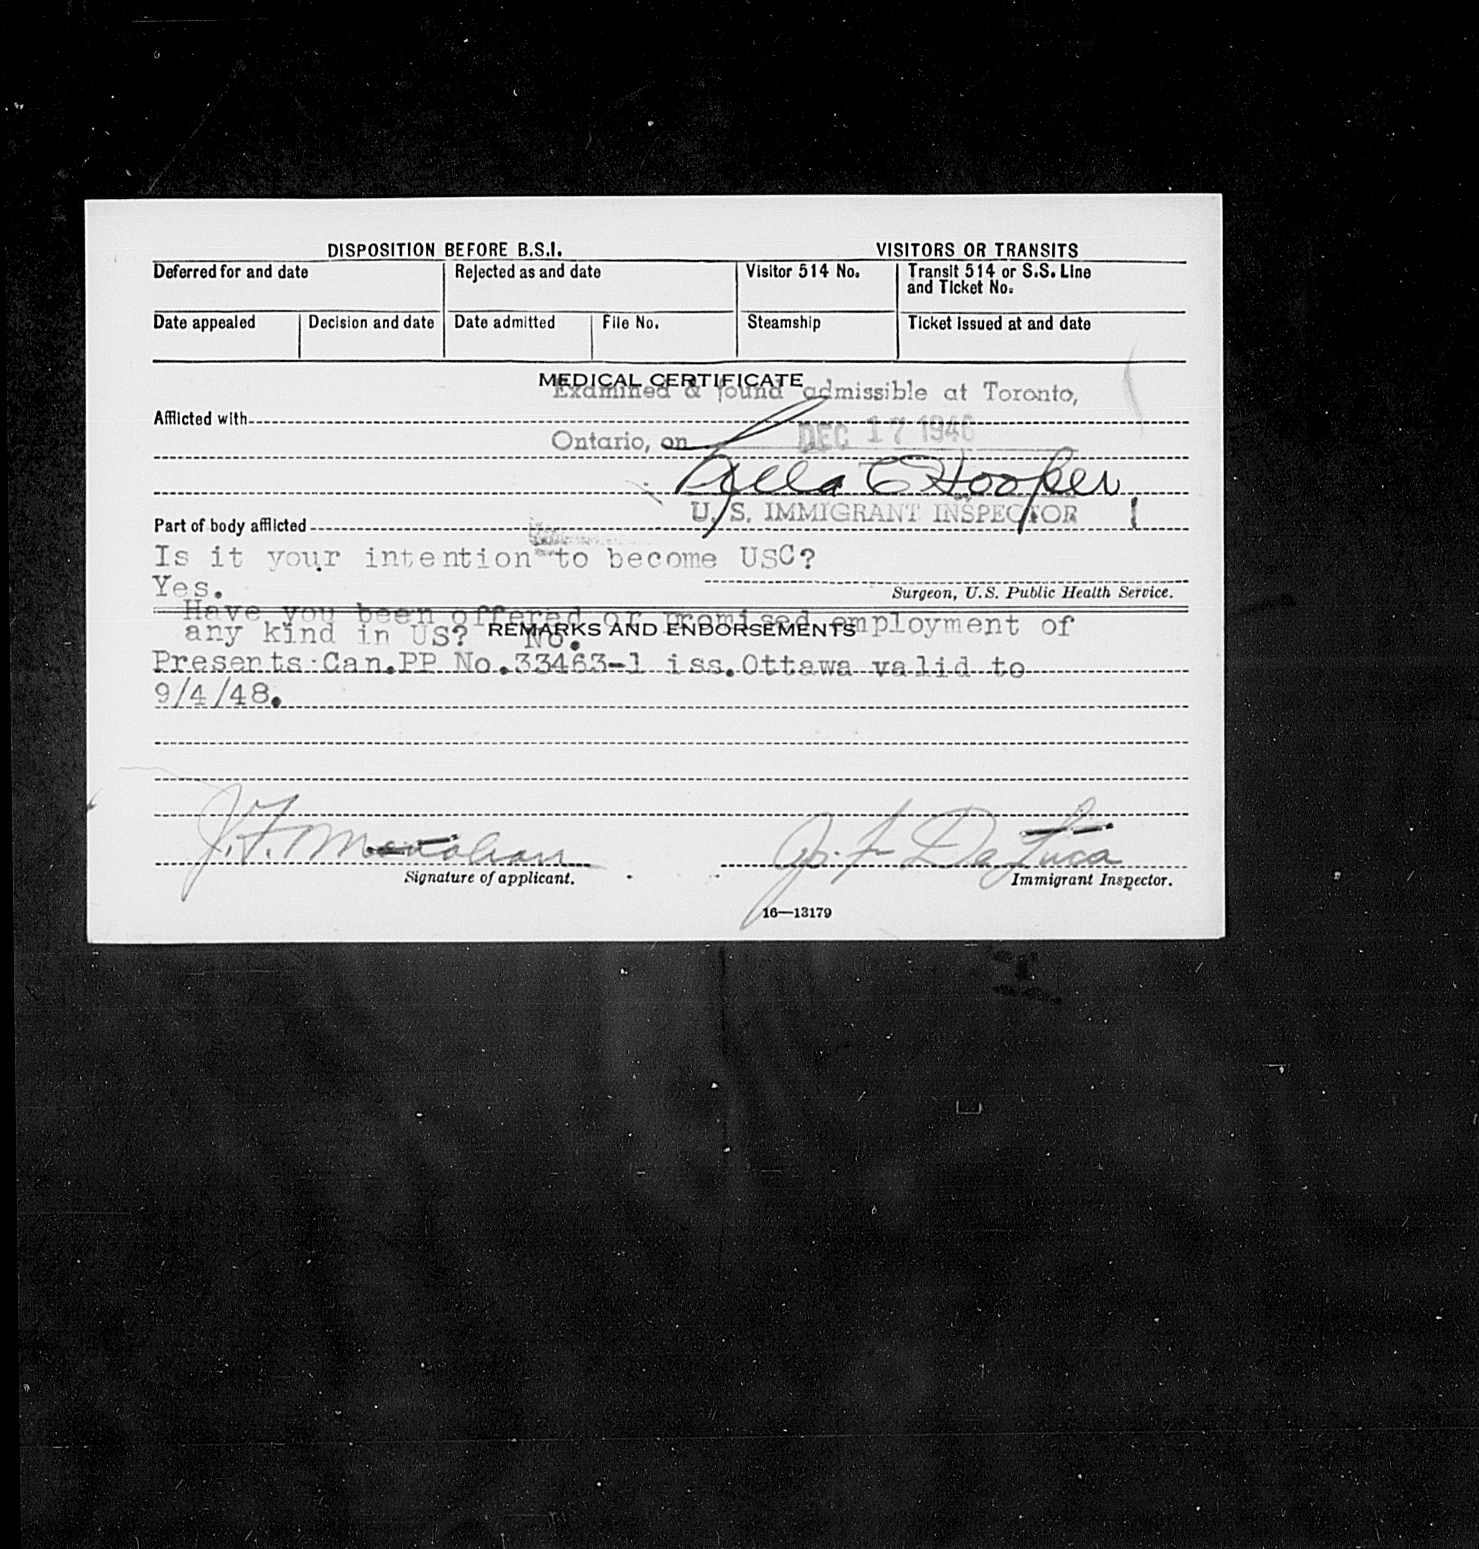 DISPOSITION BEFORE B.S.I. VISITORS OR TRANSITS
Deferred for and date Rejected as and date Visitor 514 No. Transit 514 or S.S. Line
and Ticket No.
Date appealed Decision and date Date admitted File No. Steamship Ticket issued at and date
MEDICAL CERTIFICATE
Examined & found admissible at Toronto,
Afflicted with
Ontario, on DEC 17 1946
Hooper
U. S. IMMIGRANT INSPECTOR
Part of body afflicted
Is it your intention to become USC?
Yes.
Surgeon, U.S. Public Health Service.
Have you been offered or promised employment of
any kind in US? No.
REMARKS AND ENDORSEMENTS
Presents Can.PP No.33463-1 iss.Ottawa valid to
9/4/48.
J.F. Jos. F De Luca
Signature of applicant. Immigrant Inspector.
16—13179